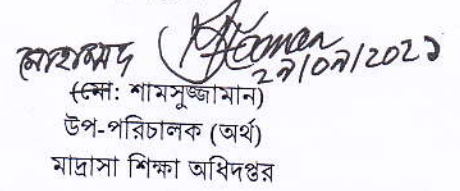 মোহাম্মদ
২৭/০৭/2021
(মো: শামসুজ্জামান)
উপ-পরিচালক (অর্থ)
মাদ্রাসা শিক্ষা অধিদপ্তর